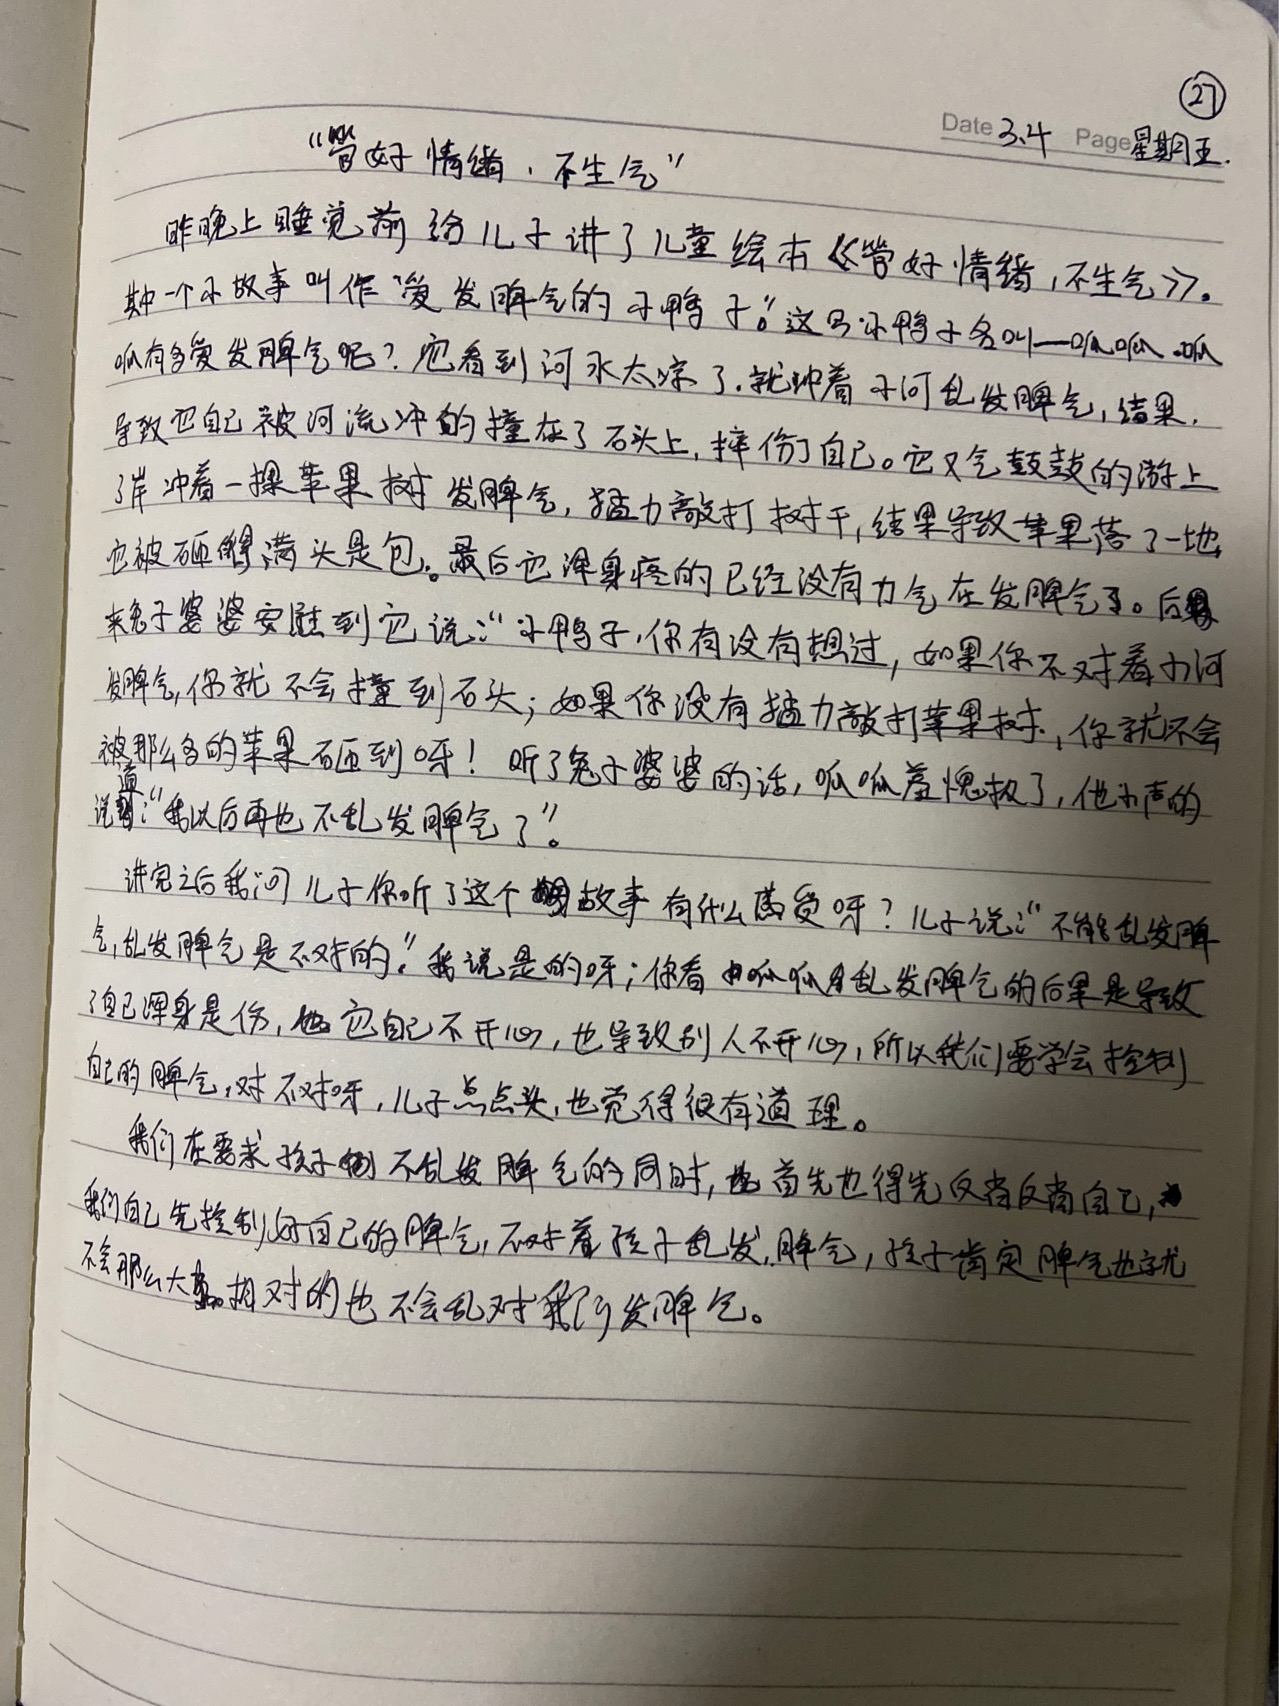 ㉗
Date 3.4 Page 星期五.
“管好情绪，不生气”
昨晚上睡觉前给儿子讲了儿童绘本《管好情绪，不生气》。
其中一个小故事叫作“爱发脾气的小鸭子”。这只小鸭子名叫—呱呱.呱
呱有多爱发脾气呢？它看到河水太凉了.就冲着小河乱发脾气，结果，
导致它自己被河流冲的撞在了石头上，摔伤了自己。它又气鼓鼓的游上
了岸冲着一棵苹果树发脾气，猛力敲打树干，结果导致苹果落了一地，
它被砸得满头是包。最后它浑身疼的已经没有力气在发脾气了。后
来兔子婆婆安慰到它说：“小鸭子，你有没有想过，如果你不对着小河
发脾气，你就不会撞到石头；如果你没有猛力敲打苹果树，你就不会
被那么多的苹果砸到呀！听了兔子婆婆的话，呱呱羞愧极了，他小声的
说道：“我以后再也不乱发脾气了”。
讲完之后我问儿子你听了这个故事有什么感受呀？儿子说：“不能乱发脾
气，乱发脾气是不对的”。我说是的呀；你看呱呱乱发脾气的后果是导致
了自己浑身是伤，它自己不开心，也导致别人不开心，所以我们要学会控制
自己的脾气，对不对呀，儿子点点头，也觉得很有道理。
我们在要求孩子不乱发脾气的同时，首先也得先反省反省自己，
我们自己先控制好自己的脾气，不对着孩子乱发脾气，孩子肯定脾气也就
不会那么大。相对的也不会乱对我们发脾气。